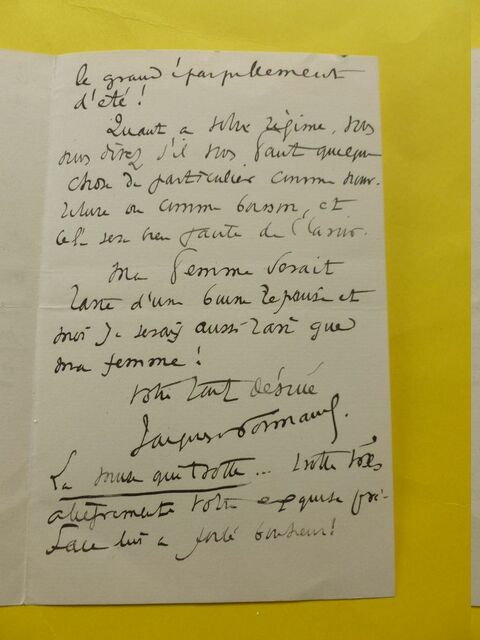 le grand éparpillement
d'été !
Quant a votre régime, vous
nous direz s'il vous faut quelque
chose de particulier comme nour-
riture ou comme boisson, et
cela sera bien facile de l'avoir.
Ma femme serait
ravie d'une bonne réponse et
moi je serais aussi ravi que
ma femme !
Votre tout dévoué
Jacques Normand.
La muse qui trotte ... trotte très
allègrement. Votre exquise pré-
face lui a porté bonheur !